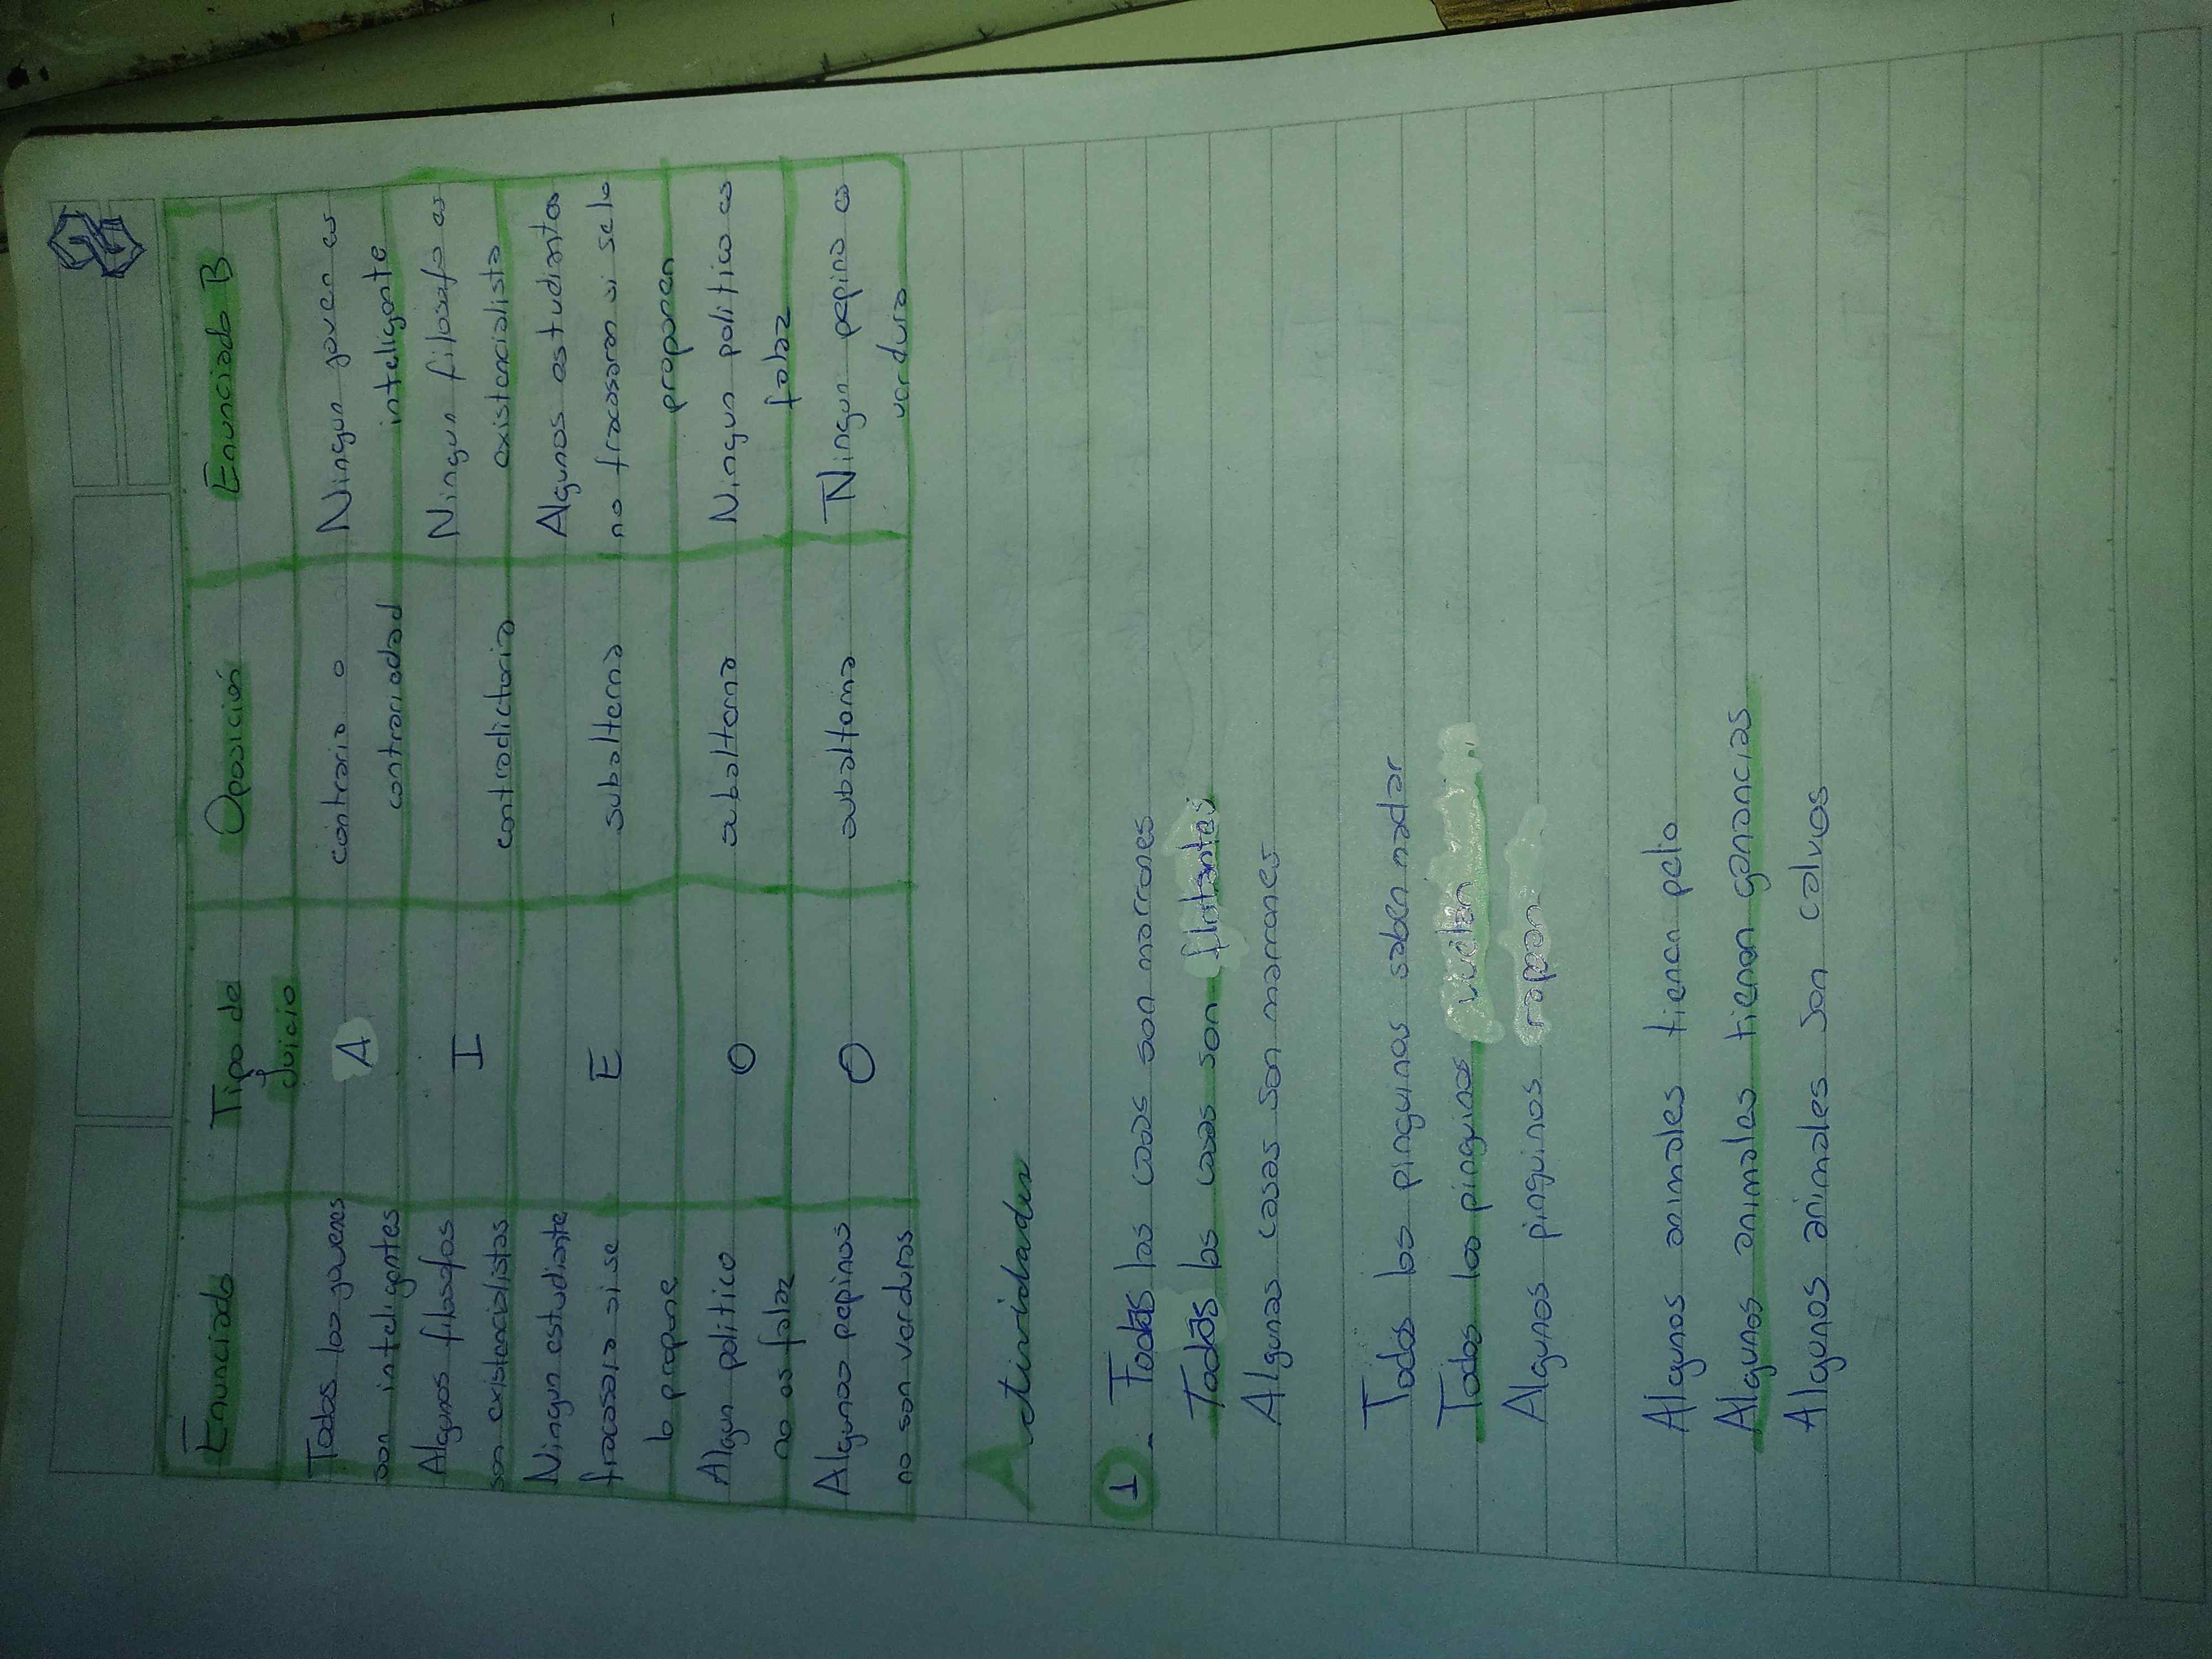 Enunciado Tipo de Juicio Oposición Enunciado B
Todos los jovenes contrario o Ningun joven es
son inteligentes A contrariedad inteligente
Algunos filosofos I Ningun filosofo es
son existencialistas contradictorio existencialista
Ningun estudiante Algunos estudiantes
fracasara si se E subalterna no fracasaran si se lo
lo propone proponen
Algun politico O subalterna Ningun politico es
no es falaz falaz
Algunos pepinos O subalterna Ningun pepino es
no son verduras verdura
Actividades
1 - Todas las casas son marrones
Todas las casas son flotantes
Algunas casas son marrones
Todos los pinguinos saben nadar
Todos los pinguinos vuelan
Algunos pinguinos rapean
Algunos animales tienen pelo
Algunos animales tienen ganancias
Algunos animales son calvos